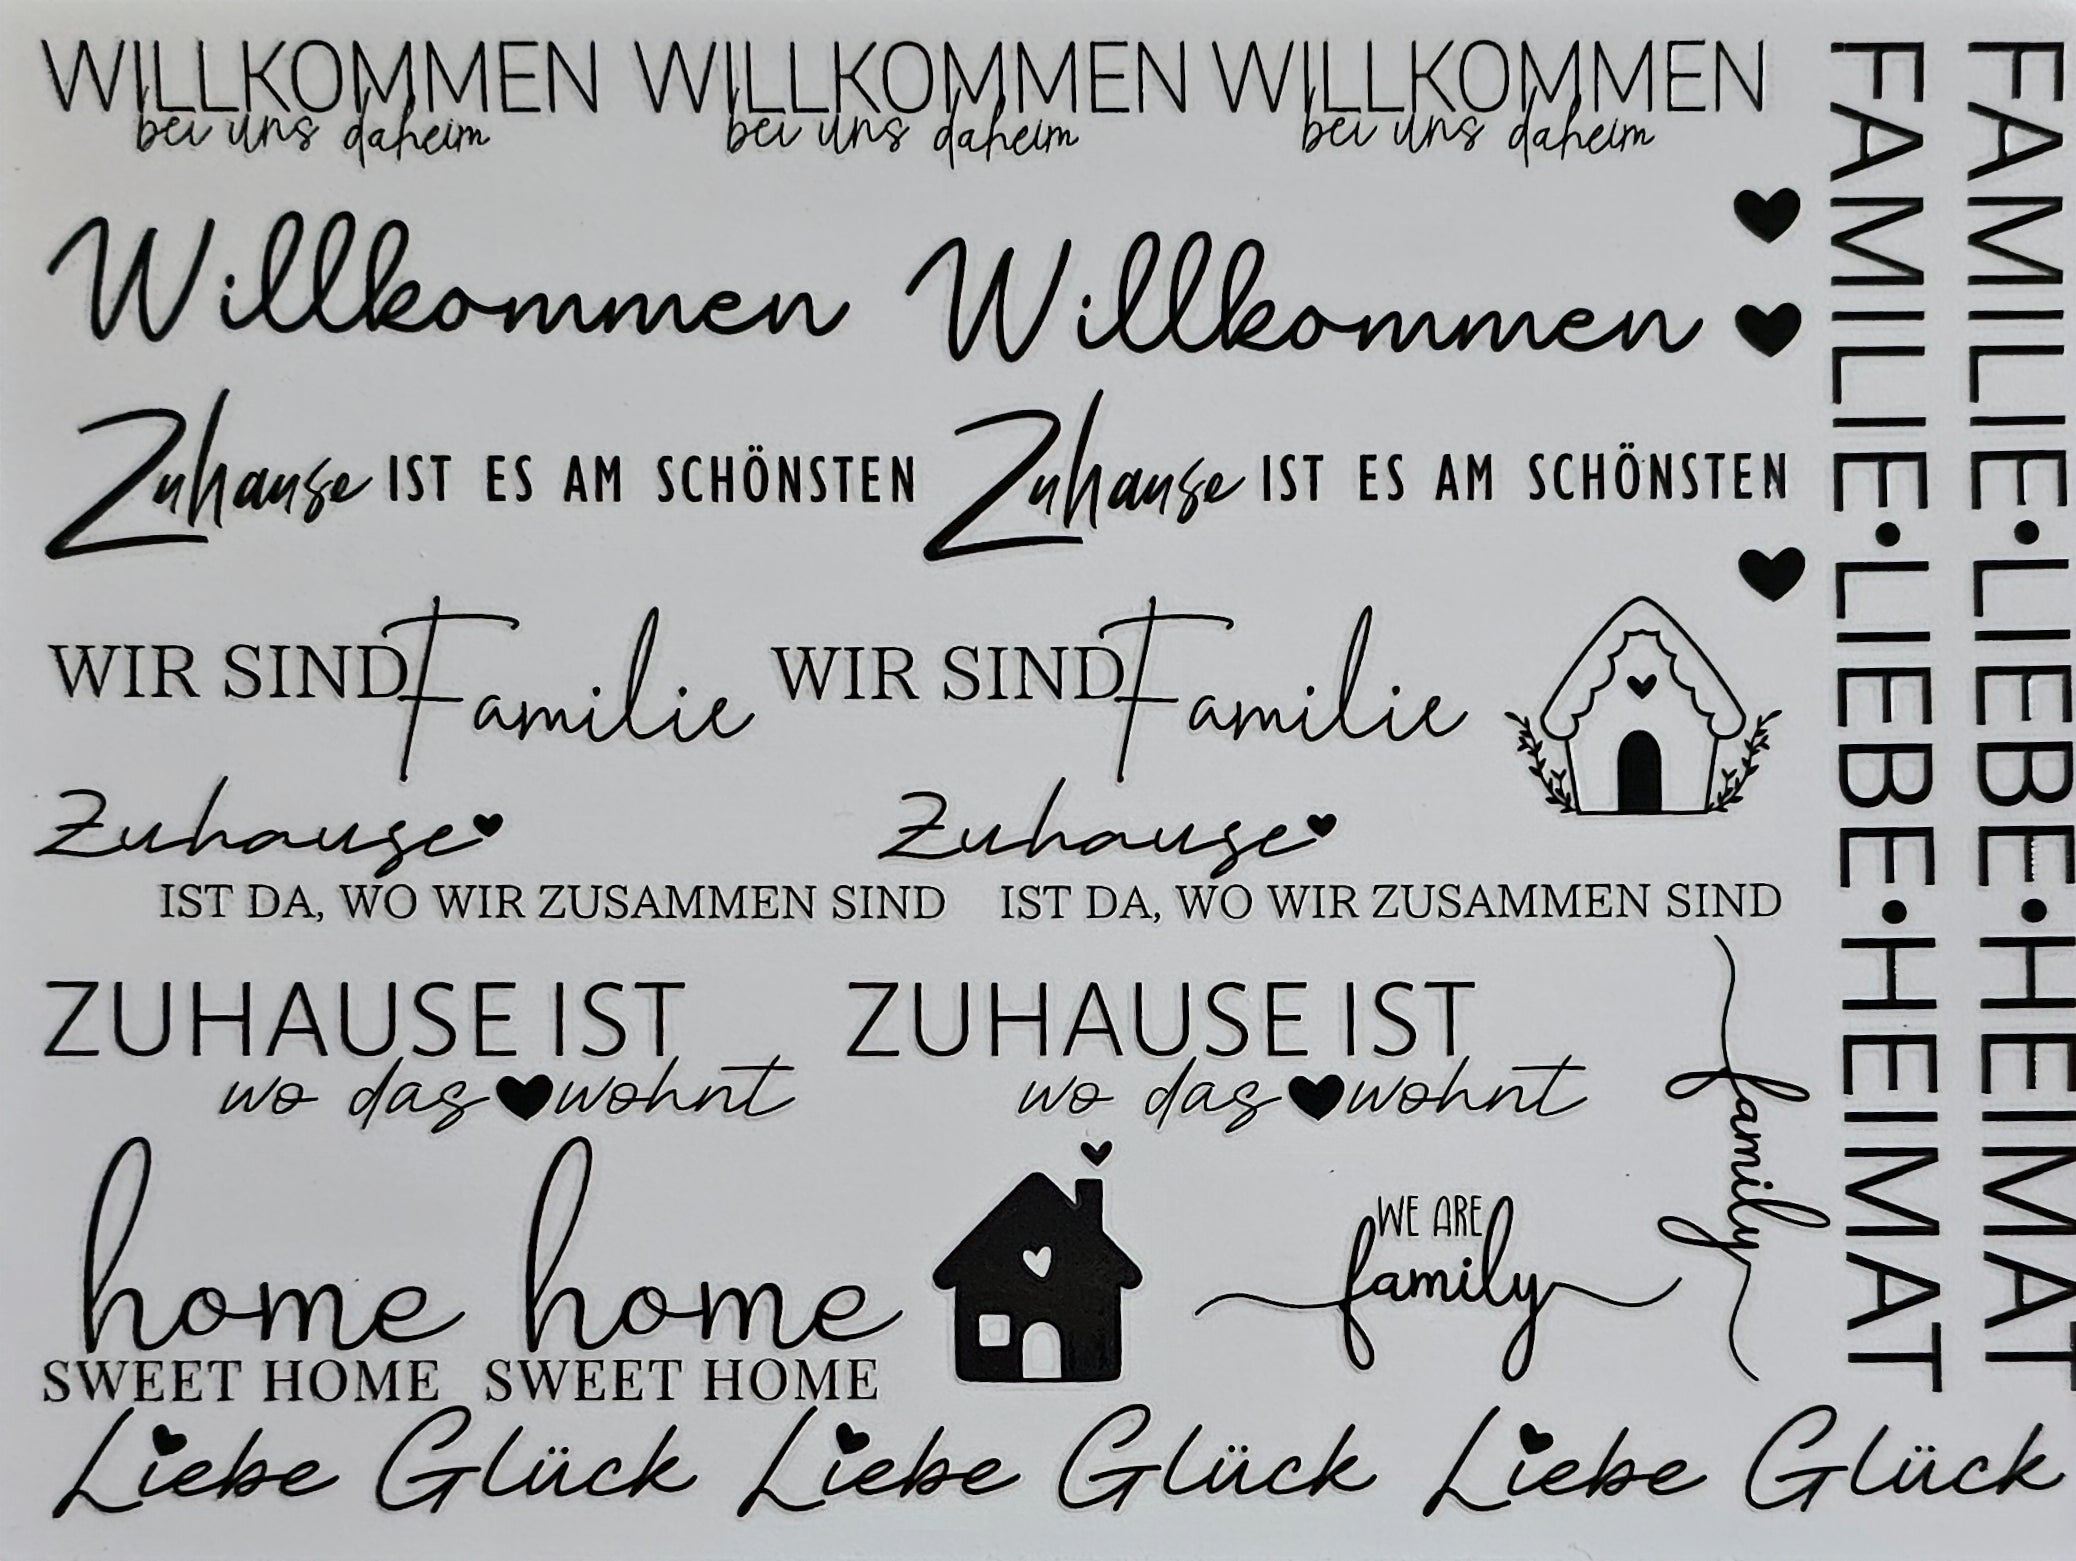 WILLKOMMEN WILLKOMMEN WILLKOMMEN
bei uns daheim bei uns daheim bei uns daheim
Willkommen Willkommen
Zuhause IST ES AM SCHÖNSTEN Zuhause IST ES AM SCHÖNSTEN
WIR SIND Familie WIR SIND Familie
Zuhause Zuhause
IST DA, WO WIR ZUSAMMEN SIND IST DA, WO WIR ZUSAMMEN SIND
ZUHAUSE IST ZUHAUSE IST
wo das wohnt wo das wohnt
home home
SWEET HOME SWEET HOME
WE ARE
family
family
Liebe Glück Liebe Glück Liebe Glück
FAMILIE•LIEBE•HEIMAT
FAMILIE•LIEBE•HEIMAT